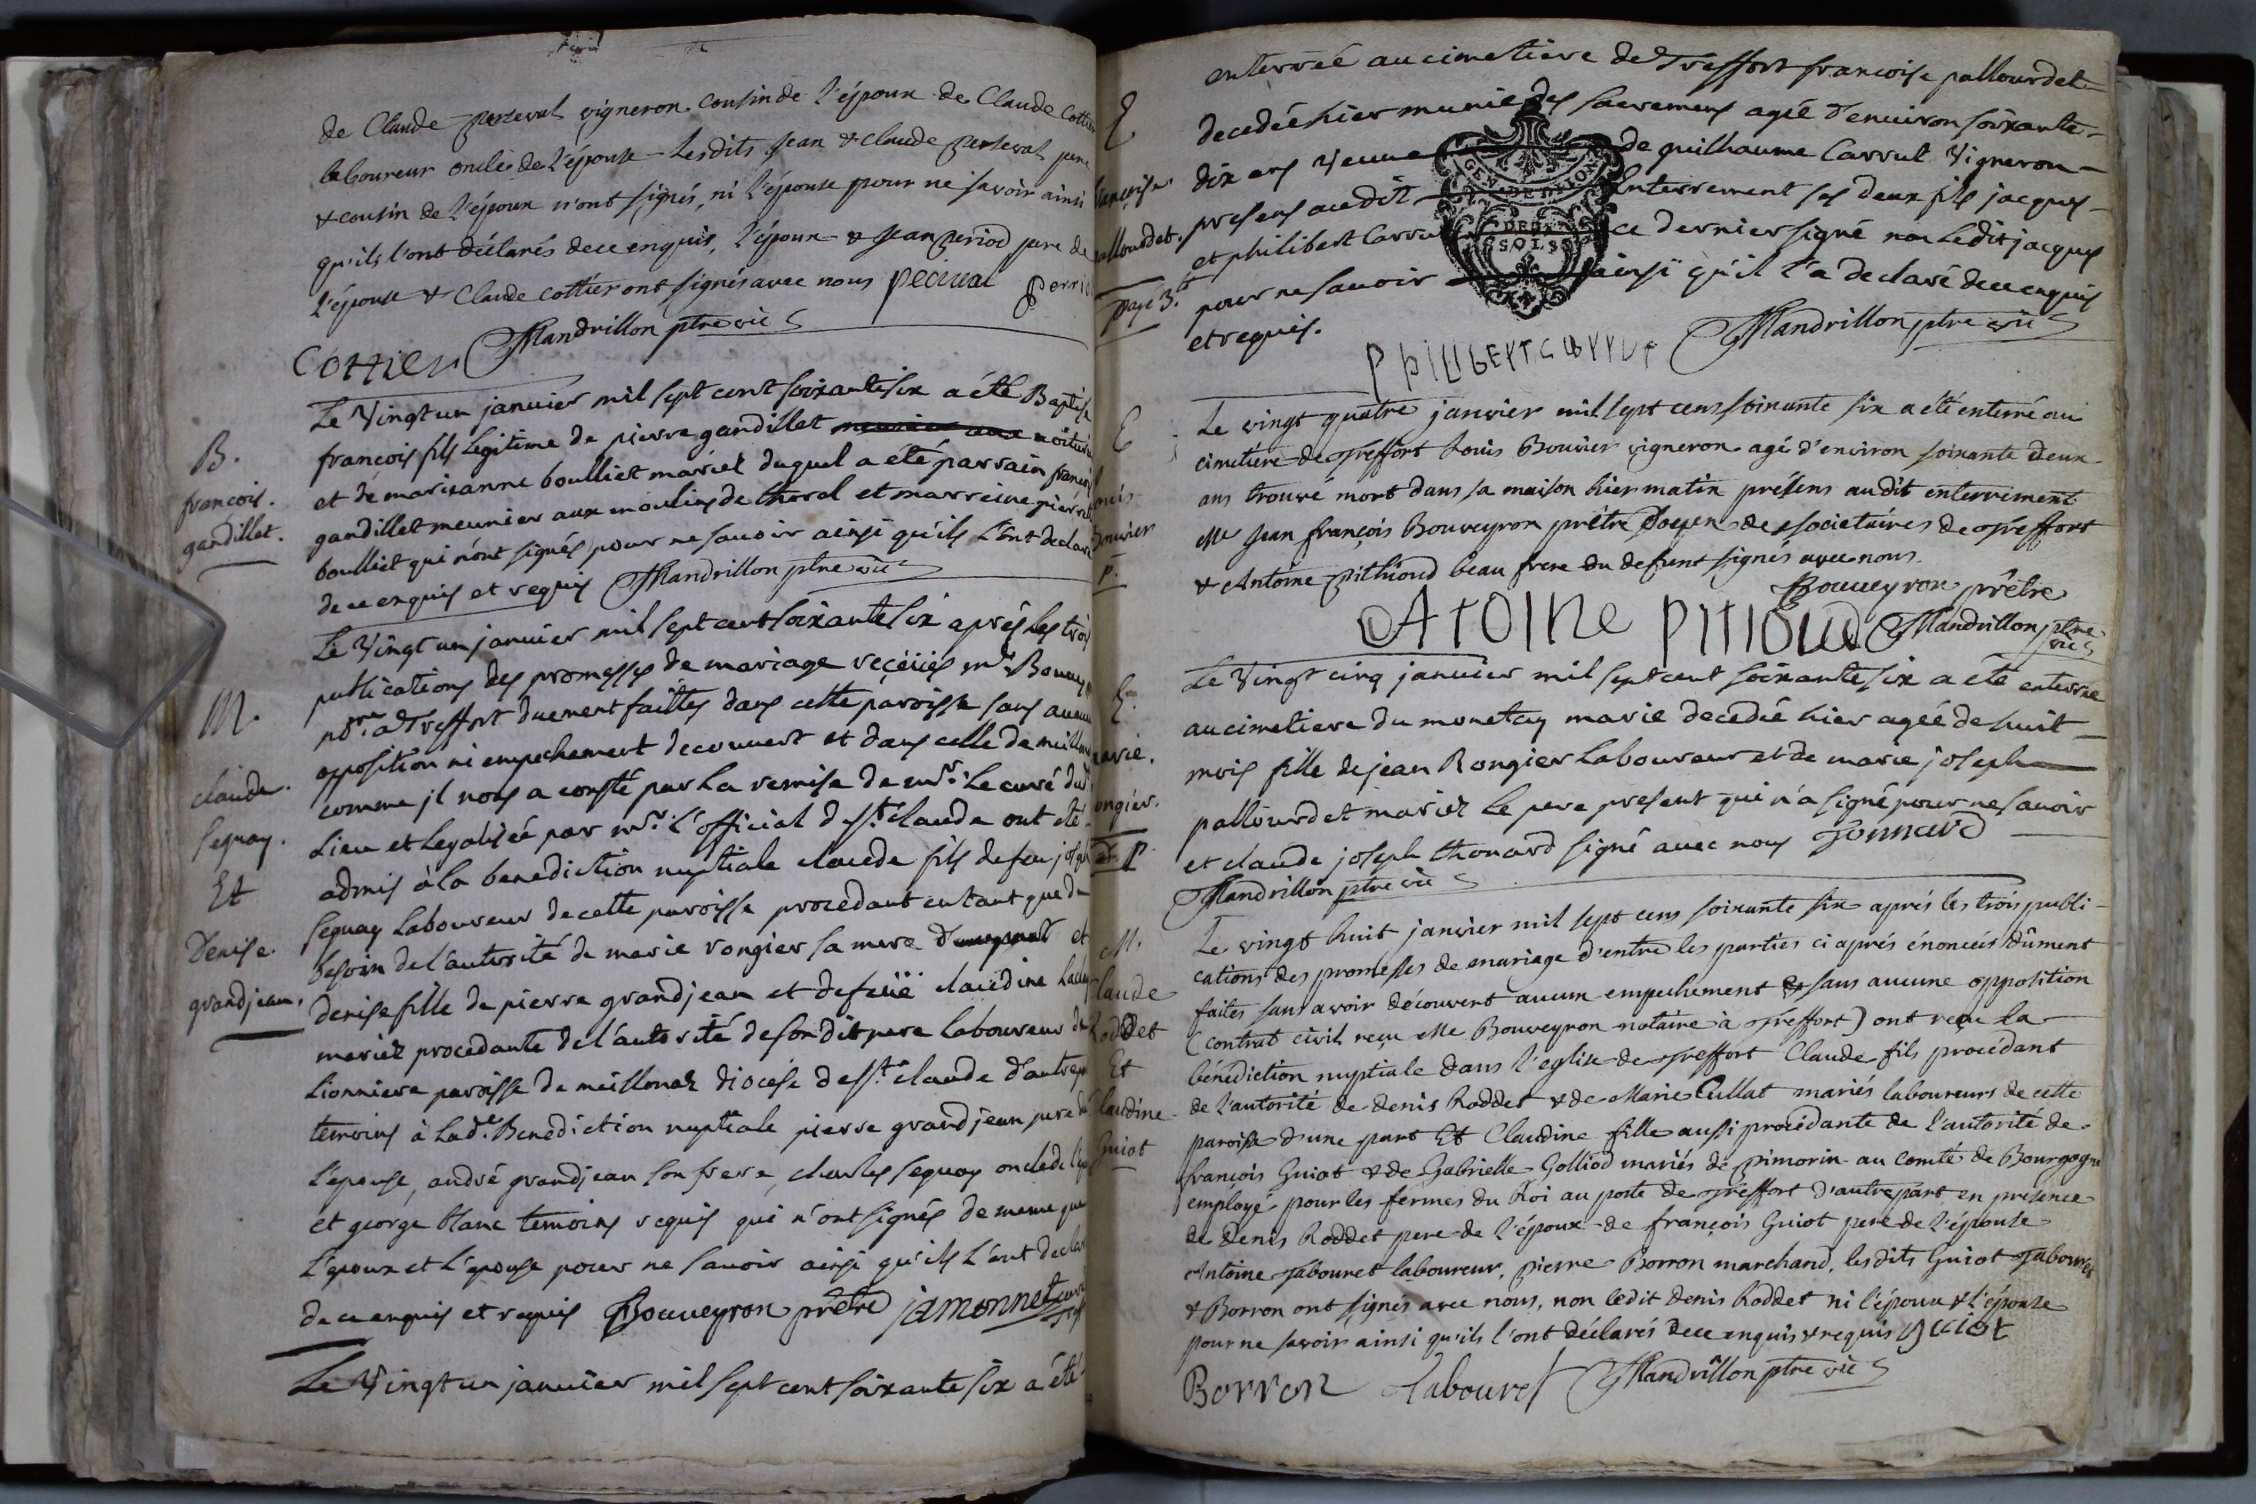 de Claude perceval vigneron cousin de l'époux de Claude Cottier
laboureur oncle de l'épouse Lesdits Jean & Claude perceval pere
& cousin de l'époux n'ont signés, ni l'épouse pour ne savoir ainsi
qu'ils l'ont déclarés de ce enquis, l'époux & Jean period pere de
l'épouse & Claude cottier ont signés avec nous pecival perrio
Cottier Mandrillon ptre vic
Le Vingt un janvier mil sept cent soixante six a été Baptise
B.
françois.
gandillet.
françois fils legitime de pierre gandillet
et de marianne boulliet mariez duquel a eté parrain francois
gandillet meunier aux moulins de thorel et marreine pierrette
boulliet qui n'ont signés pour ne savoir ainsi qu'ils l'ont declaré
de ce enquis et requis Mandrillon ptre vic
Le Vingt un janvier mil sept cent soixante six aprés les trois
publications des promesses de mariage reçeües mr. Bouvey
nre. a Treffort duement faittes dans cette paroisse sans aucun
opposition ni empechement decouvert et dans celle de meillona
comme jl nous a consté par la remise de mr. le curé dud.
Lieu et legalisée par mr. l'official de st. claude ont eté
admis à la benediction nuptiale claude fils de feu joseph
sequay Laboureur de cette paroisse procedant en tant que de
besoin de l'autorité de marie rongier sa mere d'une part et
denise fille de pierre grandjean et de feüe claudine
mariez procedante de l'autorité de son dit pere laboureur de
Lionniere paroisse de meillonaz diocése de st. claude d'autre part
temoins à lad.e Benediction nuptiale pierre grandjean pere de
l'épouse, andré grandjean son frere, charles sequay oncle de l'ép
et george blanc temoins requis qui n'ont signés de meme que
l'epoux et l'epouse pour ne savoir ainsi qu'ils l'ont declar
de ce enquis et requis Bouveyron prêtre jamonnet curé
M.
claude.
sequay.
Et
Denise.
grandjean.
Le Vingt un janvier mil sept cent soixante six a été
E
francoise
pallourdet.
page 3.e
enterrée au cimetiere de Treffort francoise pallourdet
decedée hier munie des sacremens agée d'environ soixante
dix ans Veuve de guilhaume Carrut Vigneron
presens audit Enterrement ses deux fils jacques
et philibert Carrut ce dernier signé non ledit jacques
pour ne savoir ainsi qu'il l'a declaré de ce enquis
et requis.
GEN. DE DIJON
DEUX
SOLS
PhILIBERT CARRUT Mandrillon ptre vic
E
Louis
Bouvier
p.
Le vingt quatre janvier mil sept cens soixante six a été enterré au
cimetiére de Treffort Louis Bouvier vigneron agé d'environ soixante deux
ans trouvé mort dans sa maison hier matin présens audit enterrement
Me Jean françois Bouveyron prêtre doyen des societaires de Treffort
& Antoine pithioud beau frere du defunt signés avec nous.
Bouveyron prêtre
ATOINE PITIOUD Mandrillon ptre vic
E.
marie.
rongier.
P
Le Vingt cinq janvier mil sept cent soixante six a été enterrée
au cimetiere du monetay marie decedée hier agée de huit
mois fille de jean Rongier Laboureur et de marie joseph
pallourdet mariez le pere present qui n'a signé pour ne savoir
et claude joseph thonard signé avec nous Tonnard
Mandrillon ptre vic
M.
Claude
Roddet
Et
Claudine
Guiot
Le vingt huit janvier mil sept cens soixante six aprés les trois publi-
cations des promesses de mariage d'entre les parties ci aprés énoncées dûment
faites sans avoir découvert aucun empechement & sans aucune opposition
(contrat civil reçu Me Bouveyron notaire à Treffort) ont reçu la
bénédiction nuptiale dans l'eglise de Treffort Claude fils procédant
de l'autorité de denis Roddet & de Marie Cullat mariés laboureurs de cette
paroisse d'une part Et Claudine fille aussi procédante de l'autorité de
françois Guiot & de Gabrielle Golliod mariés de pimorin au comté de Bourgogne
employé pour les fermes du Roi au poste de Treffort d'autre part en presence
de Denis Roddet pere de l'époux de françois Guiot pere de l'épouse
Antoine Tabouret laboureur, pierre Borron marchand, lesdits Guiot Tabouret
& Borron ont signés avec nous, non ledit denis Roddet ni l'époux & l'épouse
pour ne savoir ainsi qu'ils l'ont déclarés de ce enquis & requis guiot
Borron Tabouret Mandrillon ptre vic